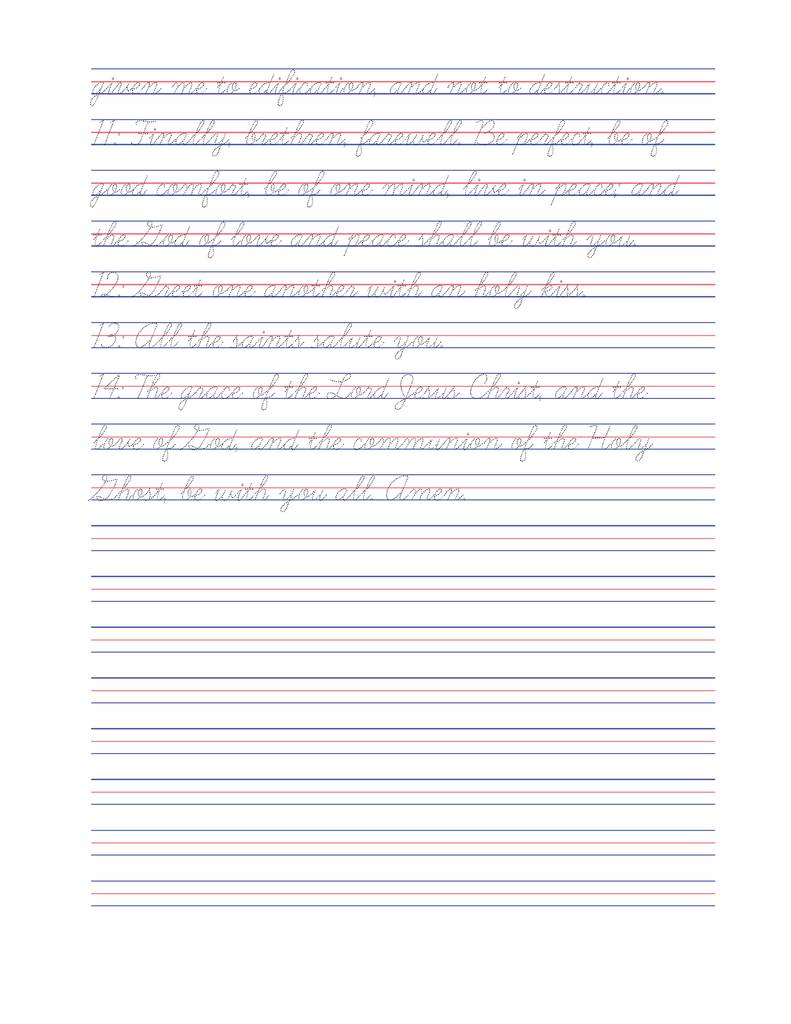 given me to edification, and not to destruction.
11: Finally, brethren, farewell. Be perfect, be of
good comfort, be of one mind, live in peace; and
the God of love and peace shall be with you.
12: Greet one another with an holy kiss.
13: All the saints salute you.
14: The grace of the Lord Jesus Christ, and the
love of God, and the communion of the Holy
Ghost, be with you all. Amen.